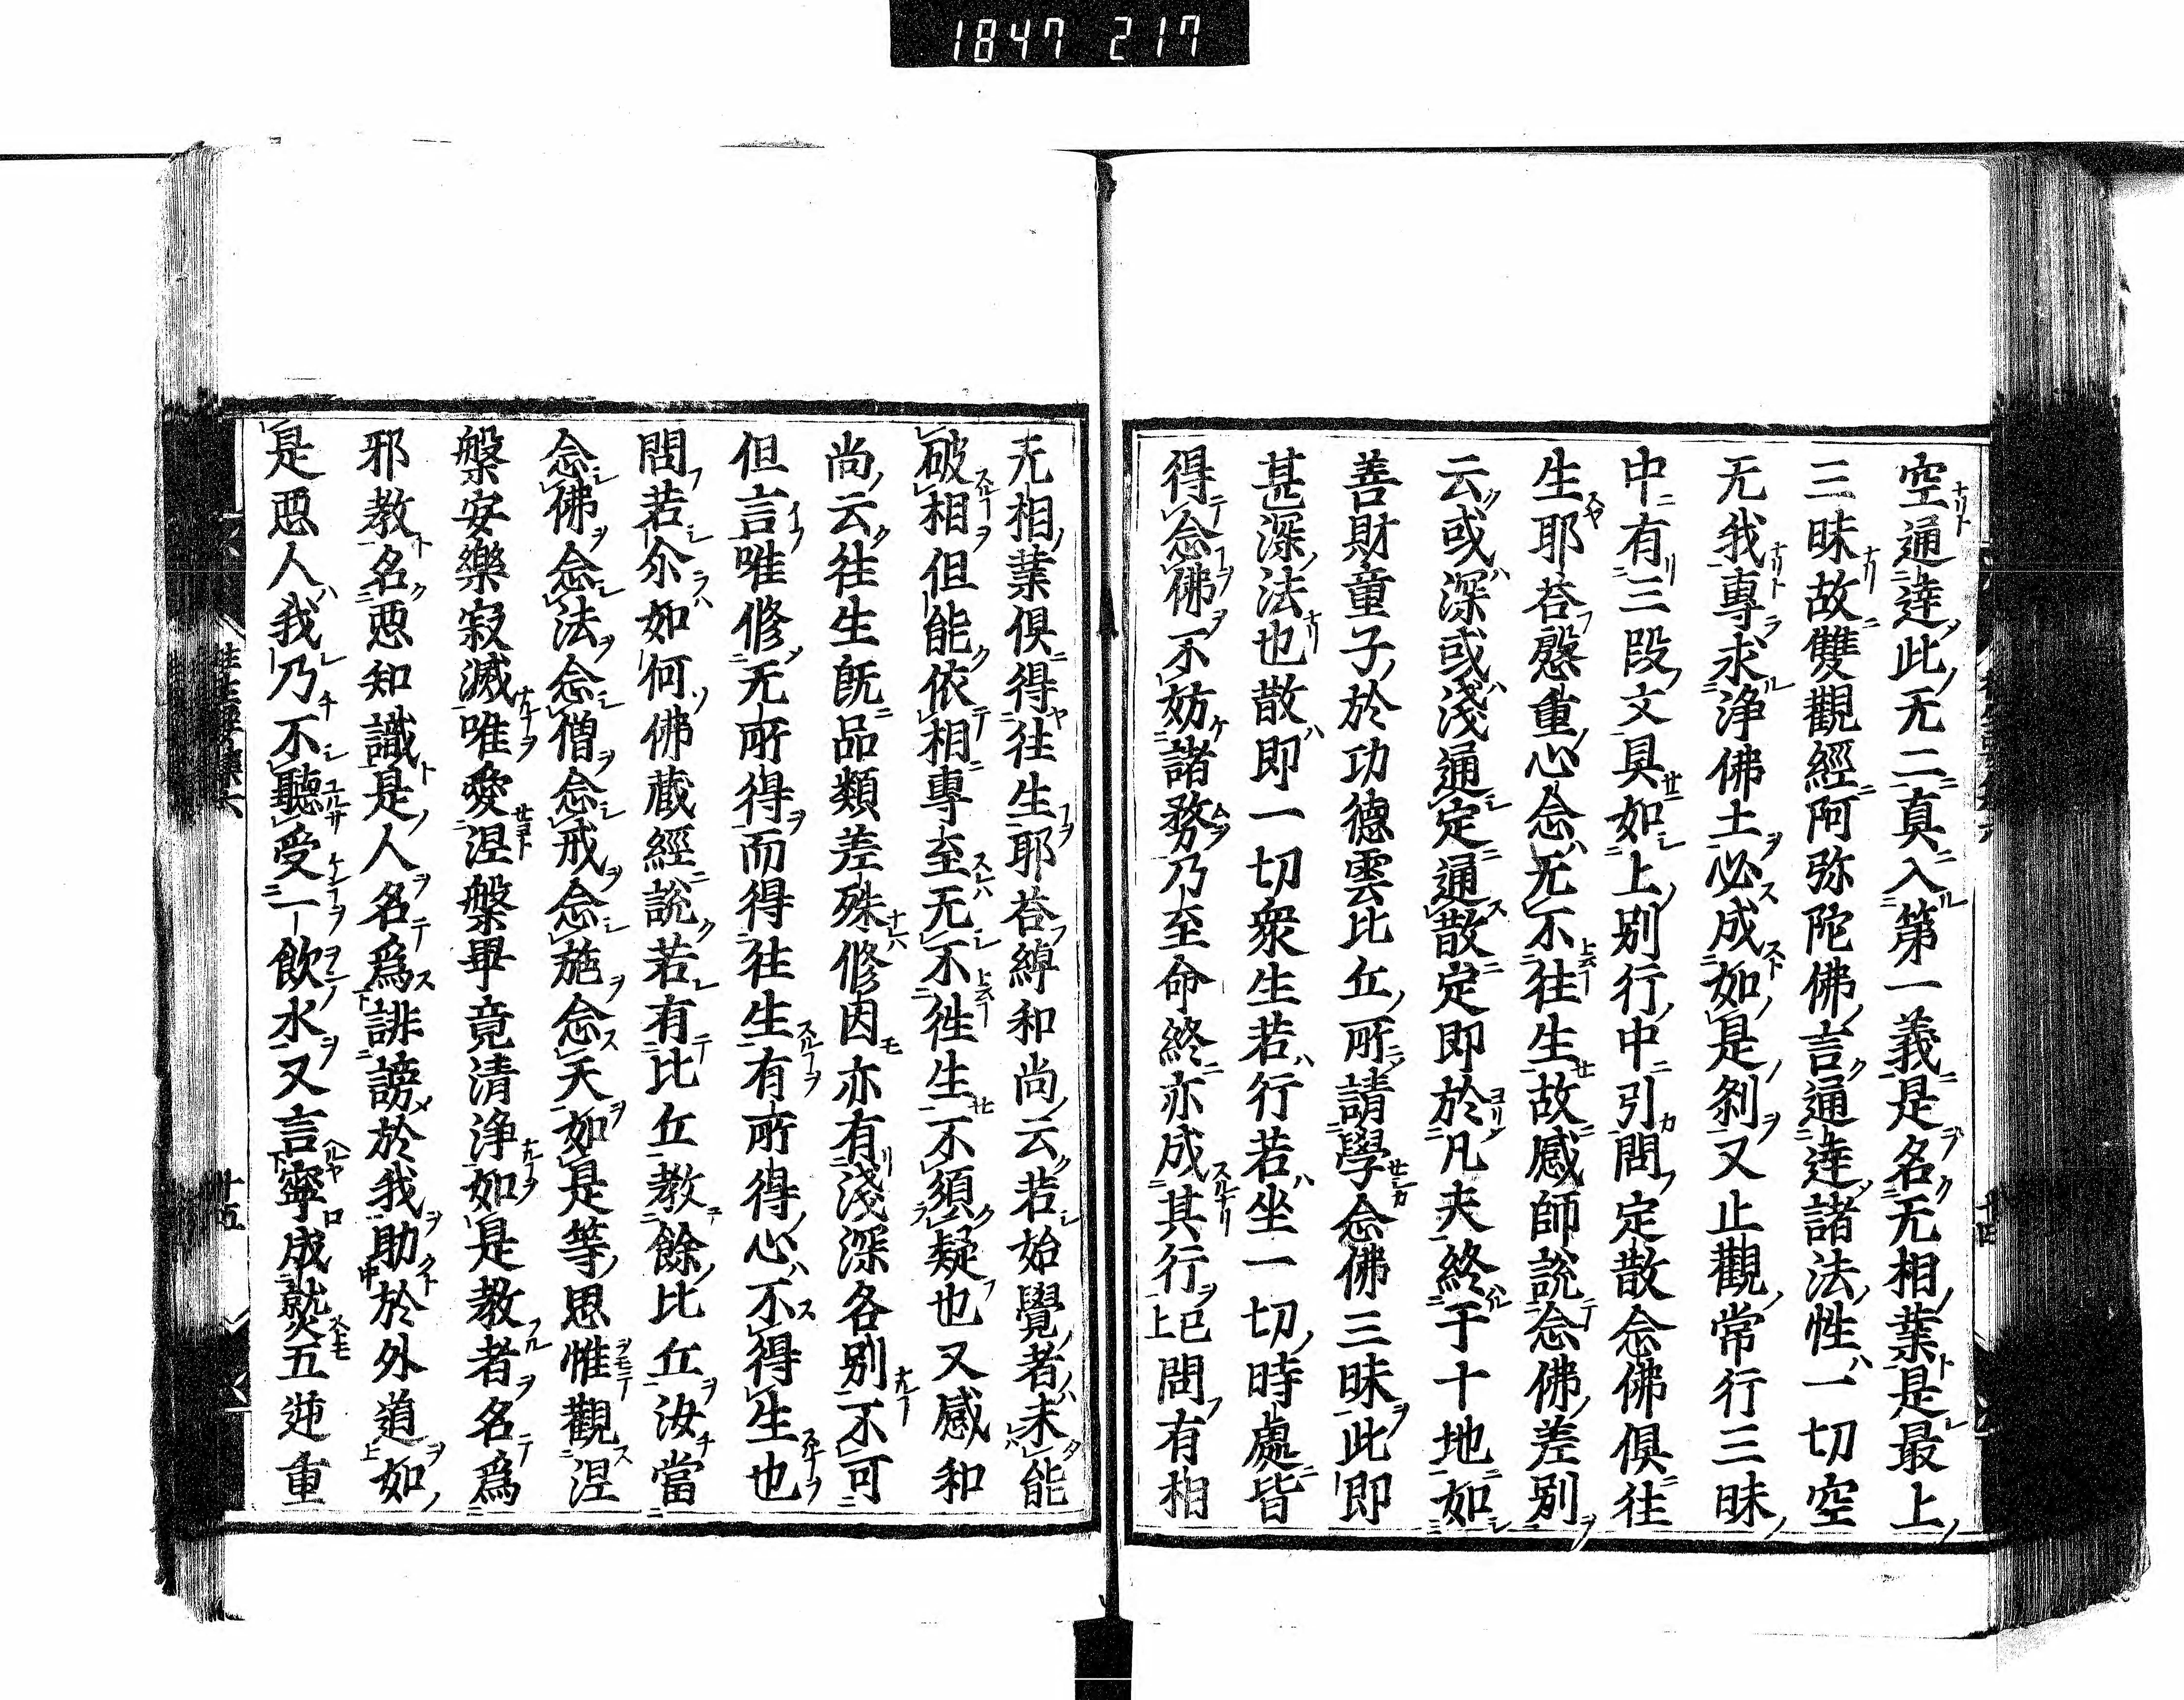 1847 217
空通達此无二真入第一義是名无相葉是最上
三昧故雙觀經阿弥陀佛言通達諸法性一切空
无我專求淨佛土必成如是刹又止觀常行三昧
中有三段文具如上別行中引問定散念佛俱往
生耶荅慇重心念无不往生故感師說念佛差別
云或深或淺通定通散定即於凡夫終于十地如
善財童子於功德雲比丘所請學念佛三昧此即
甚深法也散即一切衆生若行若坐一切時處皆
得念佛不妨諸務乃至命終亦成其行上已問有相
无相葉俱得往生耶荅綽和尚云若始覺者未能
破相但能依相專至无不徃生不須疑也又感和
尚云往生旣品類差殊修因亦有淺深各別不可
但言唯修无所得而得往生有所得心不得生也
問若尒如何佛蔵經說若有比丘教餘比丘汝當
念佛念法念僧念戒念施念天如是等思惟觀涅
槃安樂寂滅唯愛涅槃畢竟清淨如是教者名爲
邪教名悪知識是人名爲誹謗於我助於外道如
是悪人我乃不聽受一飲水又言寧成就五逆重
十五